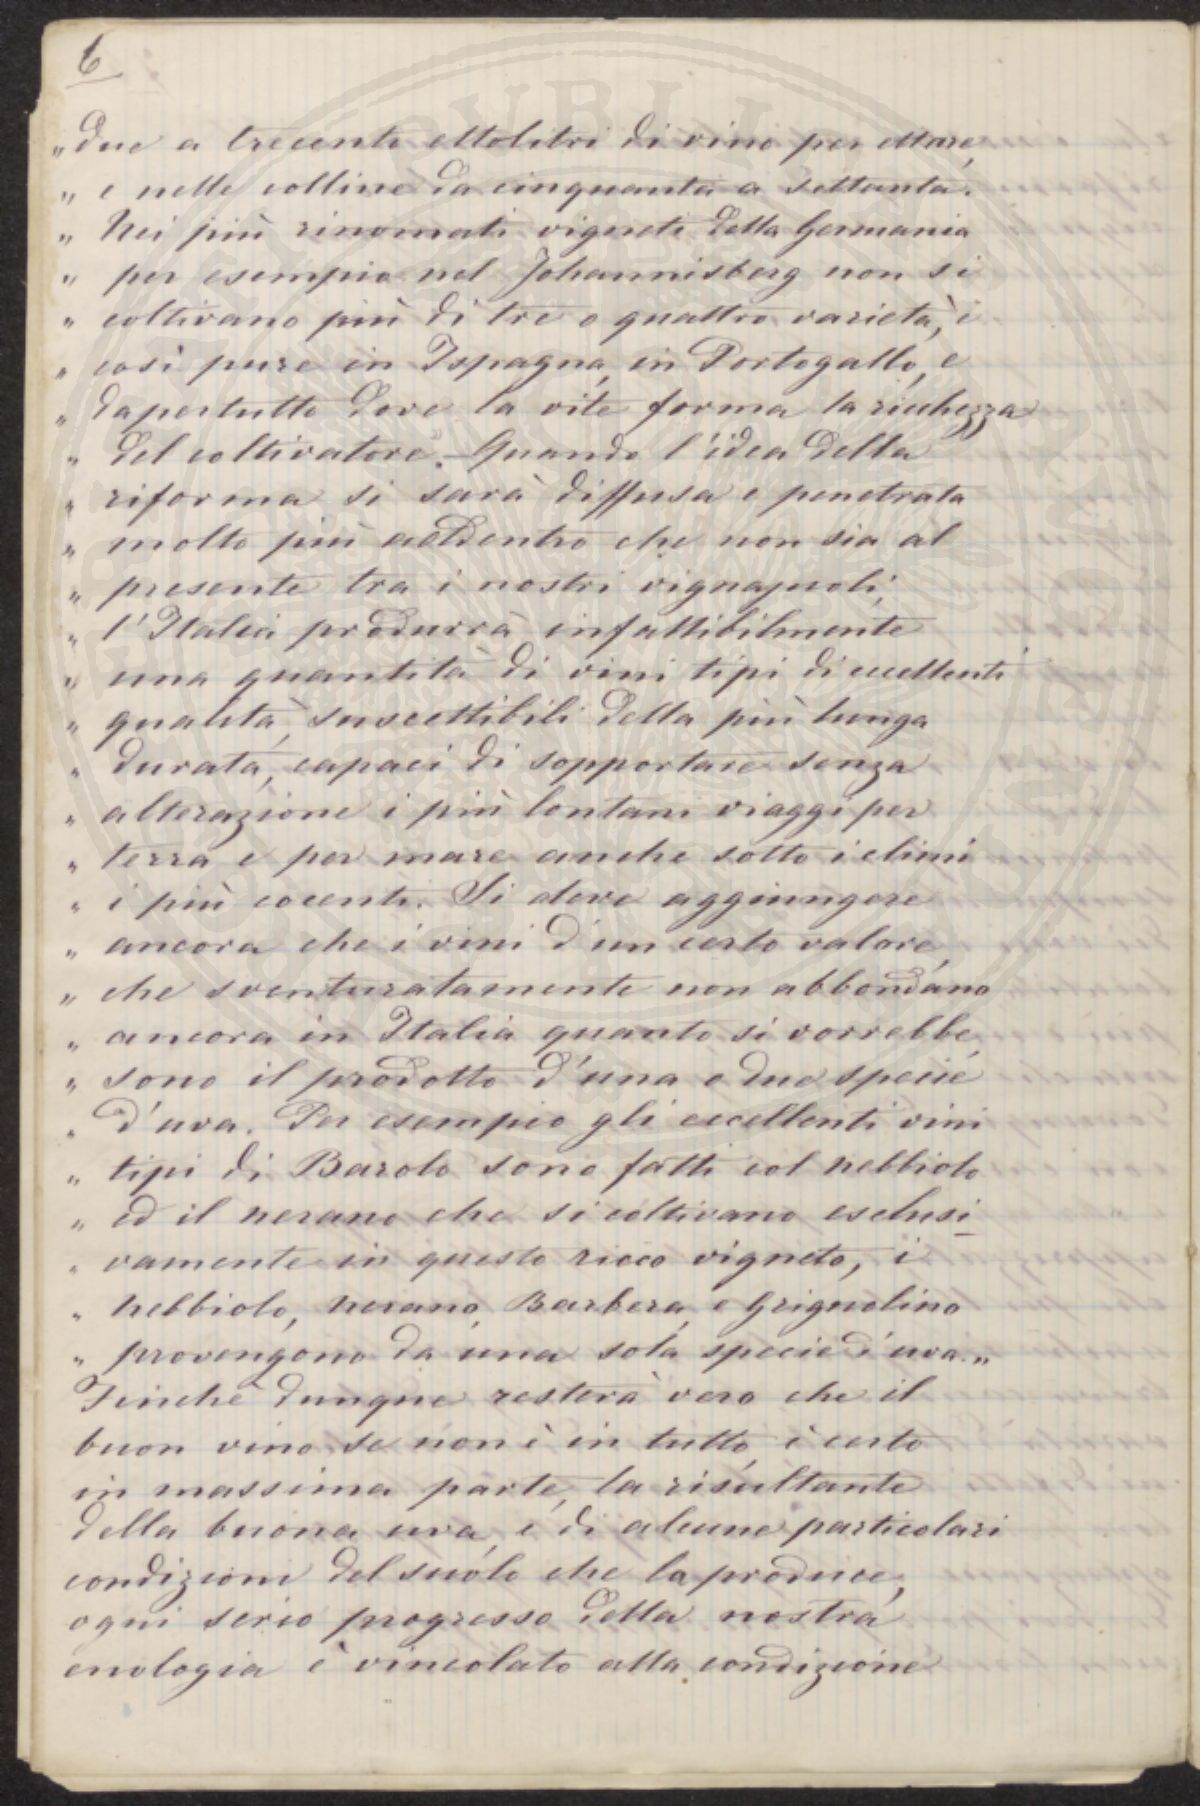 6
„ due a trecento ettolitri di vino per ettare,
„ e nelle colline da cinquanta a settanta.
„ Nei più rinomati vigneti della Germania
„ per esempio nel Johannisberg non si
„ coltivano più di tre o quattro varietà, e
„ così pure in Ispagna, in Portogallo, e
„ dapertutto dove la vite forma la ricchezza
„ del coltivatore. - Quando l'idea della
„ riforma si sarà diffusa e penetrata
„ molto più addentro che non sia al
„ presente tra i nostri vignajuoli,
„ l'Italia produrrà infallibilmente
„ una quantità di vini tipi di eccellenti
„ qualità, suscettibili della più lunga
„ durata, capaci di sopportare senza
„ alterazione i più lontani viaggi per
„ terra e per mare anche sotto i climi
„ i più cocenti. Si deve aggiungere
„ ancora che i vini d'un certo valore,
„ che sventuratamente non abbondano
„ ancora in Italia quanto si vorrebbe,
„ sono il prodotto d'una o due specie
„ d'uva. Per esempio gli eccellenti vini
„ tipi di Barolo sono fatti col nebbiolo
„ ed il nerano che si coltivano esclusi
„ vamente in questo ricco vigneto, i
„ nebbiolo, nerano, Barbera, e Grignolino
„ provengono da una sola specie d'uva. „
Finchè dunque resterà vero che il
buon vino se non è in tutto, è certo
in massima parte, la risultante
della buona uva, e di alcune particolari
condizioni del suolo che la produce,
ogni serio progresso della nostra
enologia è vincolato alla condizione